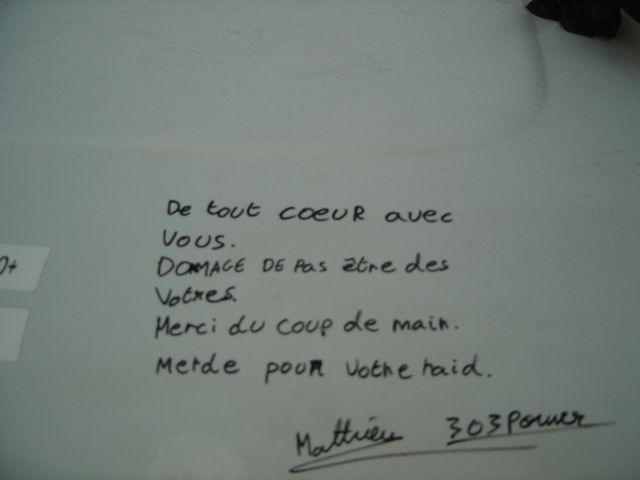 De tout COEUR avec
Vous.
DOMAGE DE PAS être des
Votres.
Merci du coup de main.
Merde pour Votre raid.
Matthieu 303Power
0+